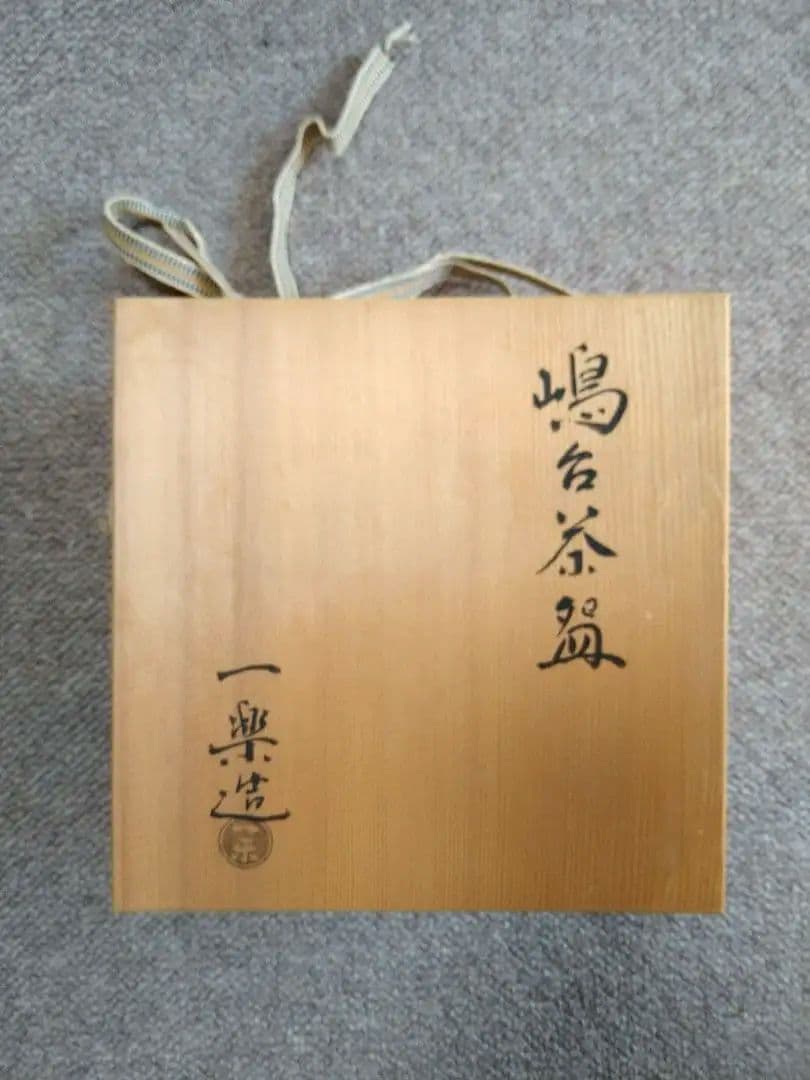 嶋台茶盌
一楽造